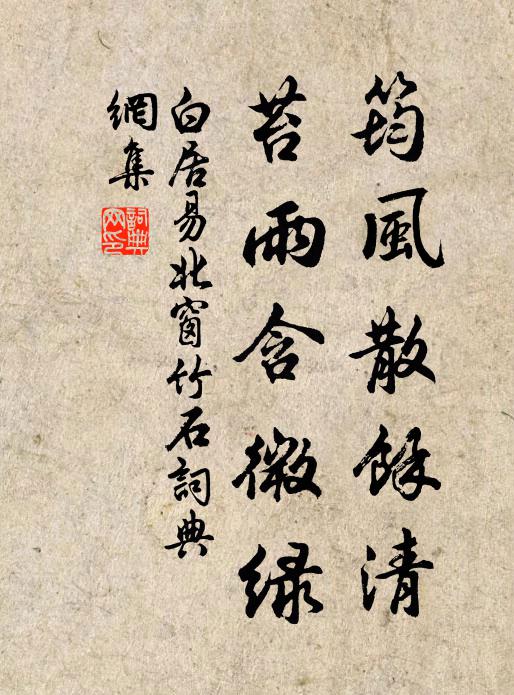 筠風散餘清
苔雨含微綠
白居易北窗竹石詞典
網集
詞典網印